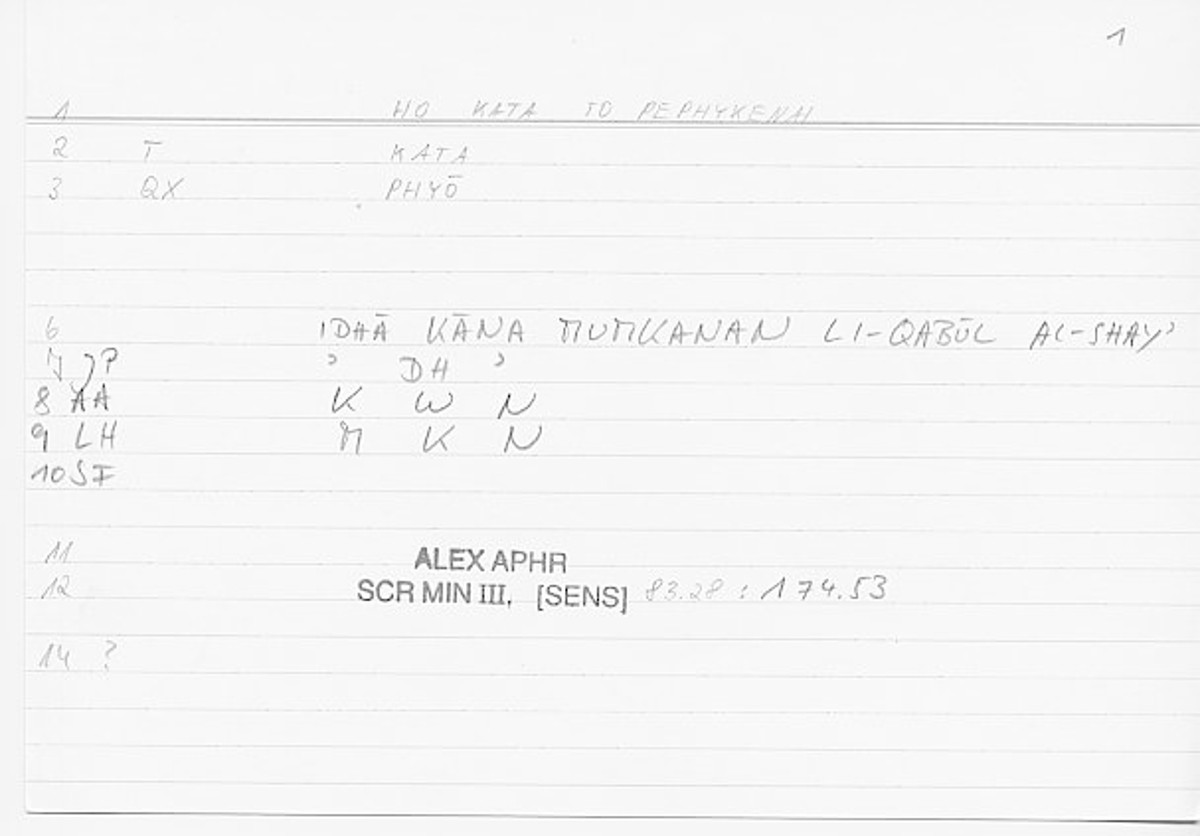 1
1 HO KATA TO PEPHYKENAI
2 T KATA
3 QX PHYŌ
6 IDHĀ KĀNA MUMKANAN LI-QABŪL AL-SHAY'
7 JP ' DH '
8 AA K W N
9 LH M K N
10 SF
11 ALEX APHR
12 SCR MIN III, [SENS] 83.28 : 174.53
14 ?